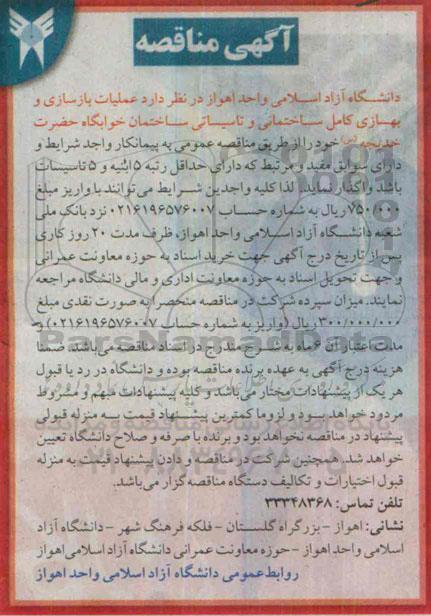 آگهی مناقصه
دانشگاه آزاد اسلامی واحد اهواز در نظر دارد عملیات بازسازی و
بهسازی کامل ساختمانی و تاسیساتی ساختمان خوابگاه حضرت
خدیجه (س) خود را از طریق مناقصه عمومی به پیمانکار واجد شرایط و
دارای سوابق مفید و مرتبط که دارای حداقل رتبه ۵ ابنیه و ۵ تاسیسات
باشد واگذار نماید. لذا کلیه واجدین شرایط می‌توانند با واریز مبلغ
ریال به شماره حساب ۰۲۱۶۱۹۶۵۷۶۰۰۷ نزد بانک ملی
شعبه دانشگاه آزاد اسلامی واحد اهواز، ظرف مدت ۲۰ روز کاری
پس از تاریخ درج آگهی جهت خرید اسناد به حوزه معاونت عمرانی
و جهت تحویل اسناد به حوزه معاونت اداری و مالی دانشگاه مراجعه
نمایند. میزان سپرده شرکت در مناقصه منحصرا به صورت نقدی مبلغ
۳۰۰/۰۰۰/۰۰۰ ریال (واریز به شماره حساب ۰۲۱۶۱۹۶۵۷۶۰۰۷) و
مدت اعتبار آن ۶ ماه به شرح مندرج در اسناد مناقصه می‌باشد. ضمنا
هزینه درج آگهی به عهده برنده مناقصه بوده و دانشگاه در رد یا قبول
هر یک از پیشنهادات مختار می‌باشد و کلیه پیشنهادات مبهم و مشروط
مردود خواهد بود و لزوما کمترین پیشنهاد قیمت به منزله قبولی
پیشنهاد در مناقصه نخواهد بود و برنده با صرفه و صلاح دانشگاه تعیین
خواهد شد. همچنین شرکت در مناقصه و دادن پیشنهاد قیمت به منزله
قبول اختیارات و تکالیف دستگاه مناقصه‌گزار می‌باشد.
تلفن تماس: ۳۳۳۴۸۳۶۸
نشانی: اهواز - بزرگراه گلستان - فلکه فرهنگ شهر - دانشگاه آزاد
اسلامی واحد اهواز - حوزه معاونت عمرانی دانشگاه آزاد اسلامی اهواز
روابط عمومی دانشگاه آزاد اسلامی واحد اهواز
ParsNamadData